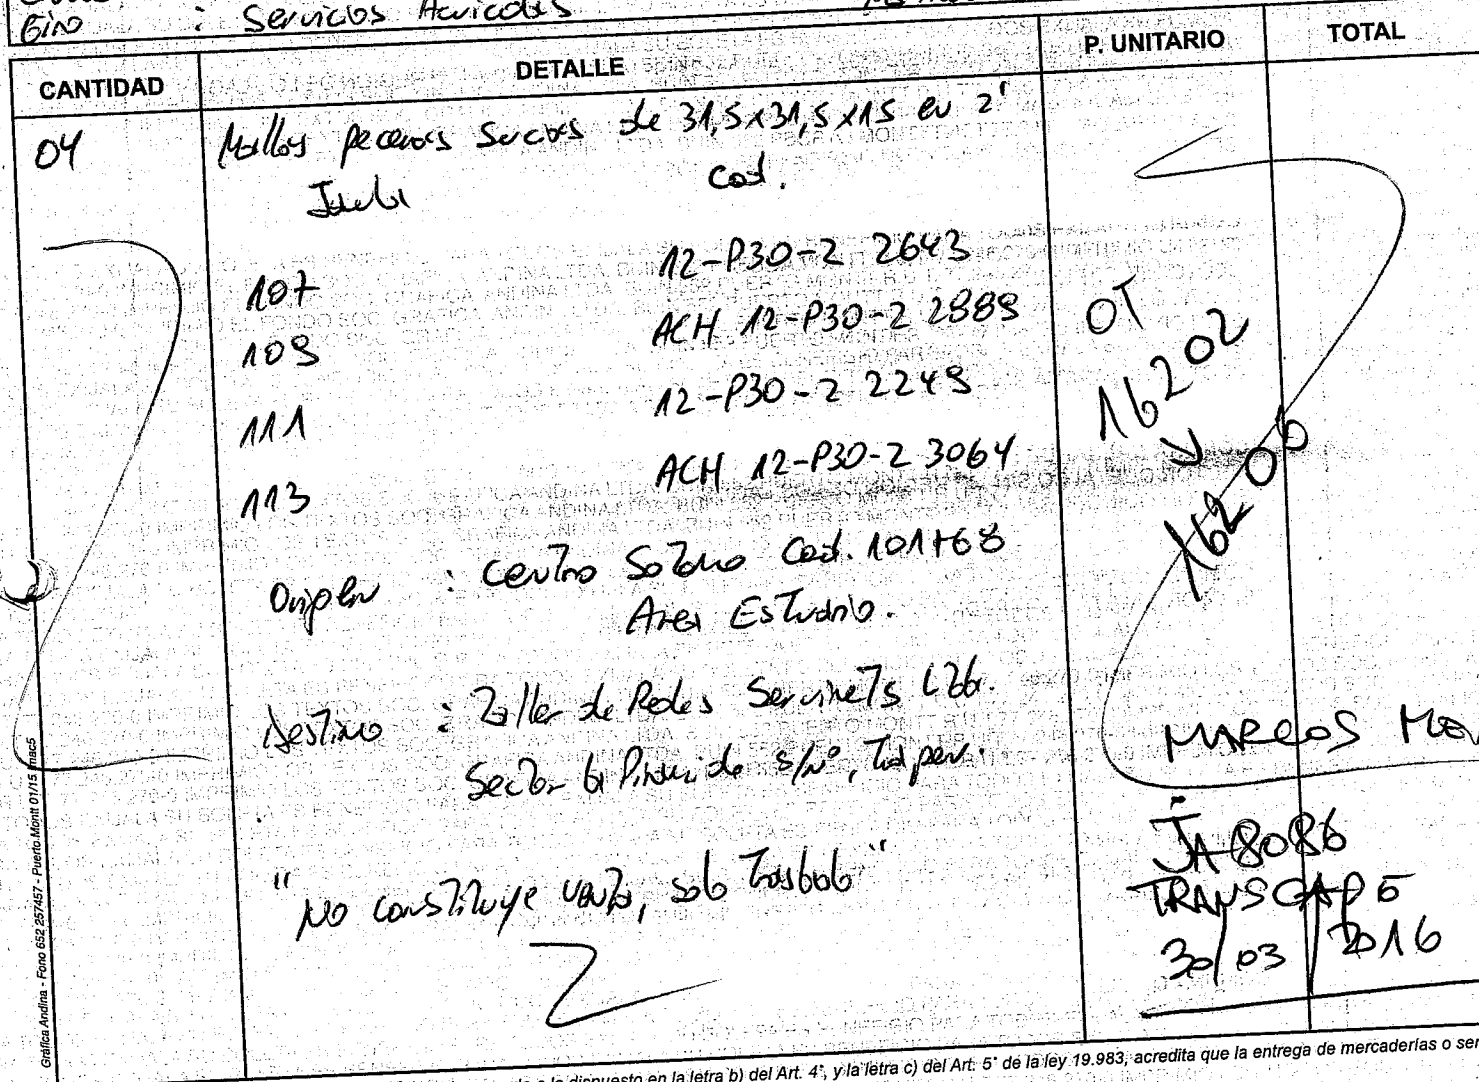 Giro : Servicios Acuicolas
CANTIDAD DETALLE P. UNITARIO TOTAL
04 Mallas peceras sucias de 31,5x31,5x15 en 2"
Jaula Cod.
107 12-P30-2 2643
109 ACH 12-P30-2 2889
111 12-P30-2 2249
113 ACH 12-P30-2 3064
OT
16202
16206
Origen : Centro Sotomo Cod. 101768
Area Estuario.
Destino : Taller de Redes Servinets Ltda.
Sector la Piramide s/n°,
"No constituye venta, solo traslado"
MARCOS
JA 8086
TRANSCAPE
30/03/2016
Gráfica Andina - Fono 652 257457 - Puerto Montt 01/15 /mac5
dispuesto en la letra b) del Art. 4°, y la letra c) del Art. 5° de la ley 19.983, acredita que la entrega de mercaderías o